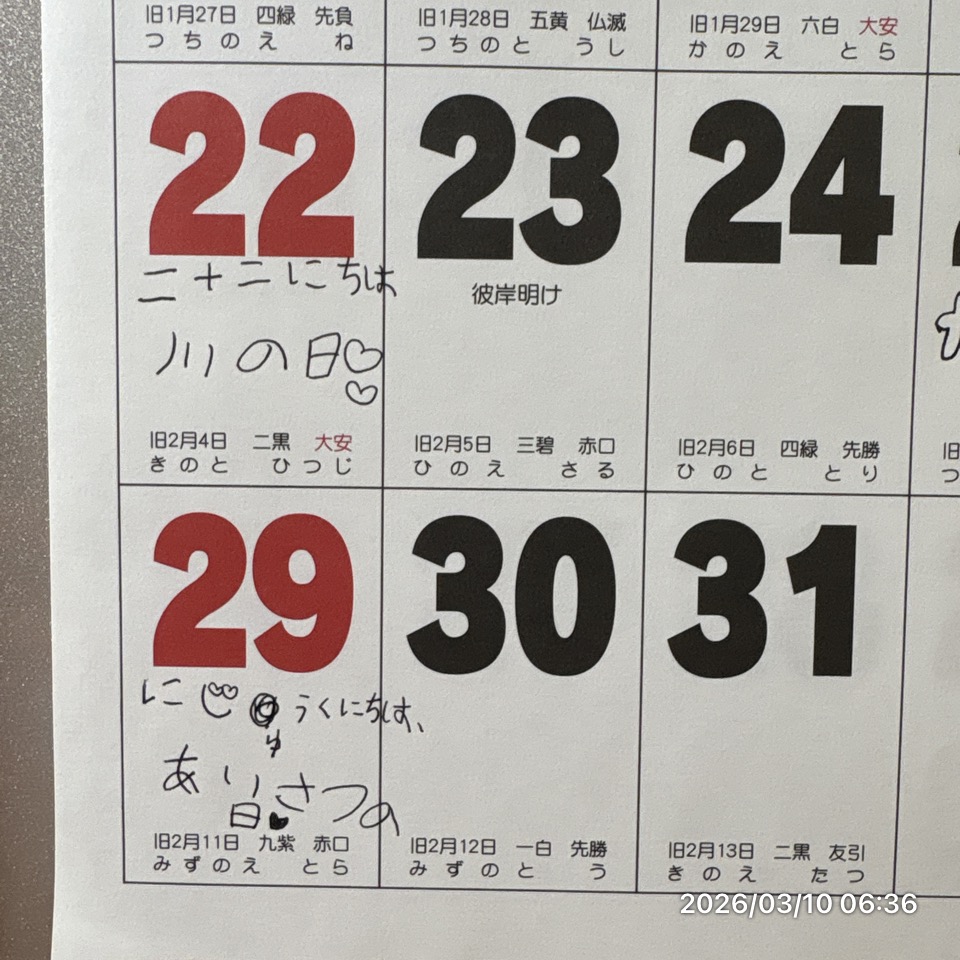 旧1月27日 四緑 先負
つちのえ ね
旧1月28日 五黄 仏滅
つちのと うし
旧1月29日 六白 大安
かのえ とら
22
二十二にちは
川の日
旧2月4日 二黒 大安
きのと ひつじ
23
彼岸明け
旧2月5日 三碧 赤口
ひのえ さる
24
旧2月6日 四緑 先勝
ひのと とり
29
にじ ゅうくにちは、
あいさつの
日
旧2月11日 九紫 赤口
みずのえ とら
30
旧2月12日 一白 先勝
みずのと う
31
旧2月13日 二黒 友引
きのえ たつ
2026/03/10 06:36